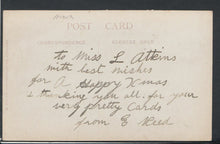 POST CARD
CORRESPONDENCE ADDRESS ONLY
to Miss L Atkins
with best wishes
for A Happy Xmas
& thanking you all for your
very pretty Cards
from E Reed